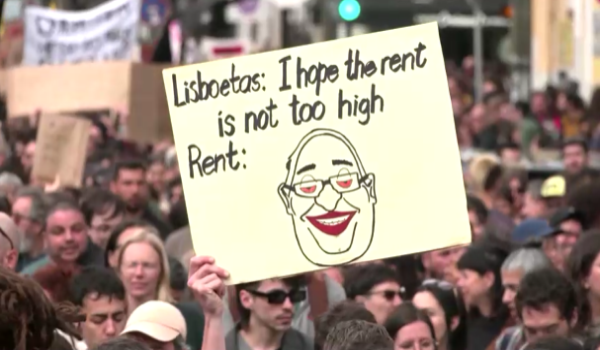 Lisboetas: I hope the rent
is not too high
Rent: